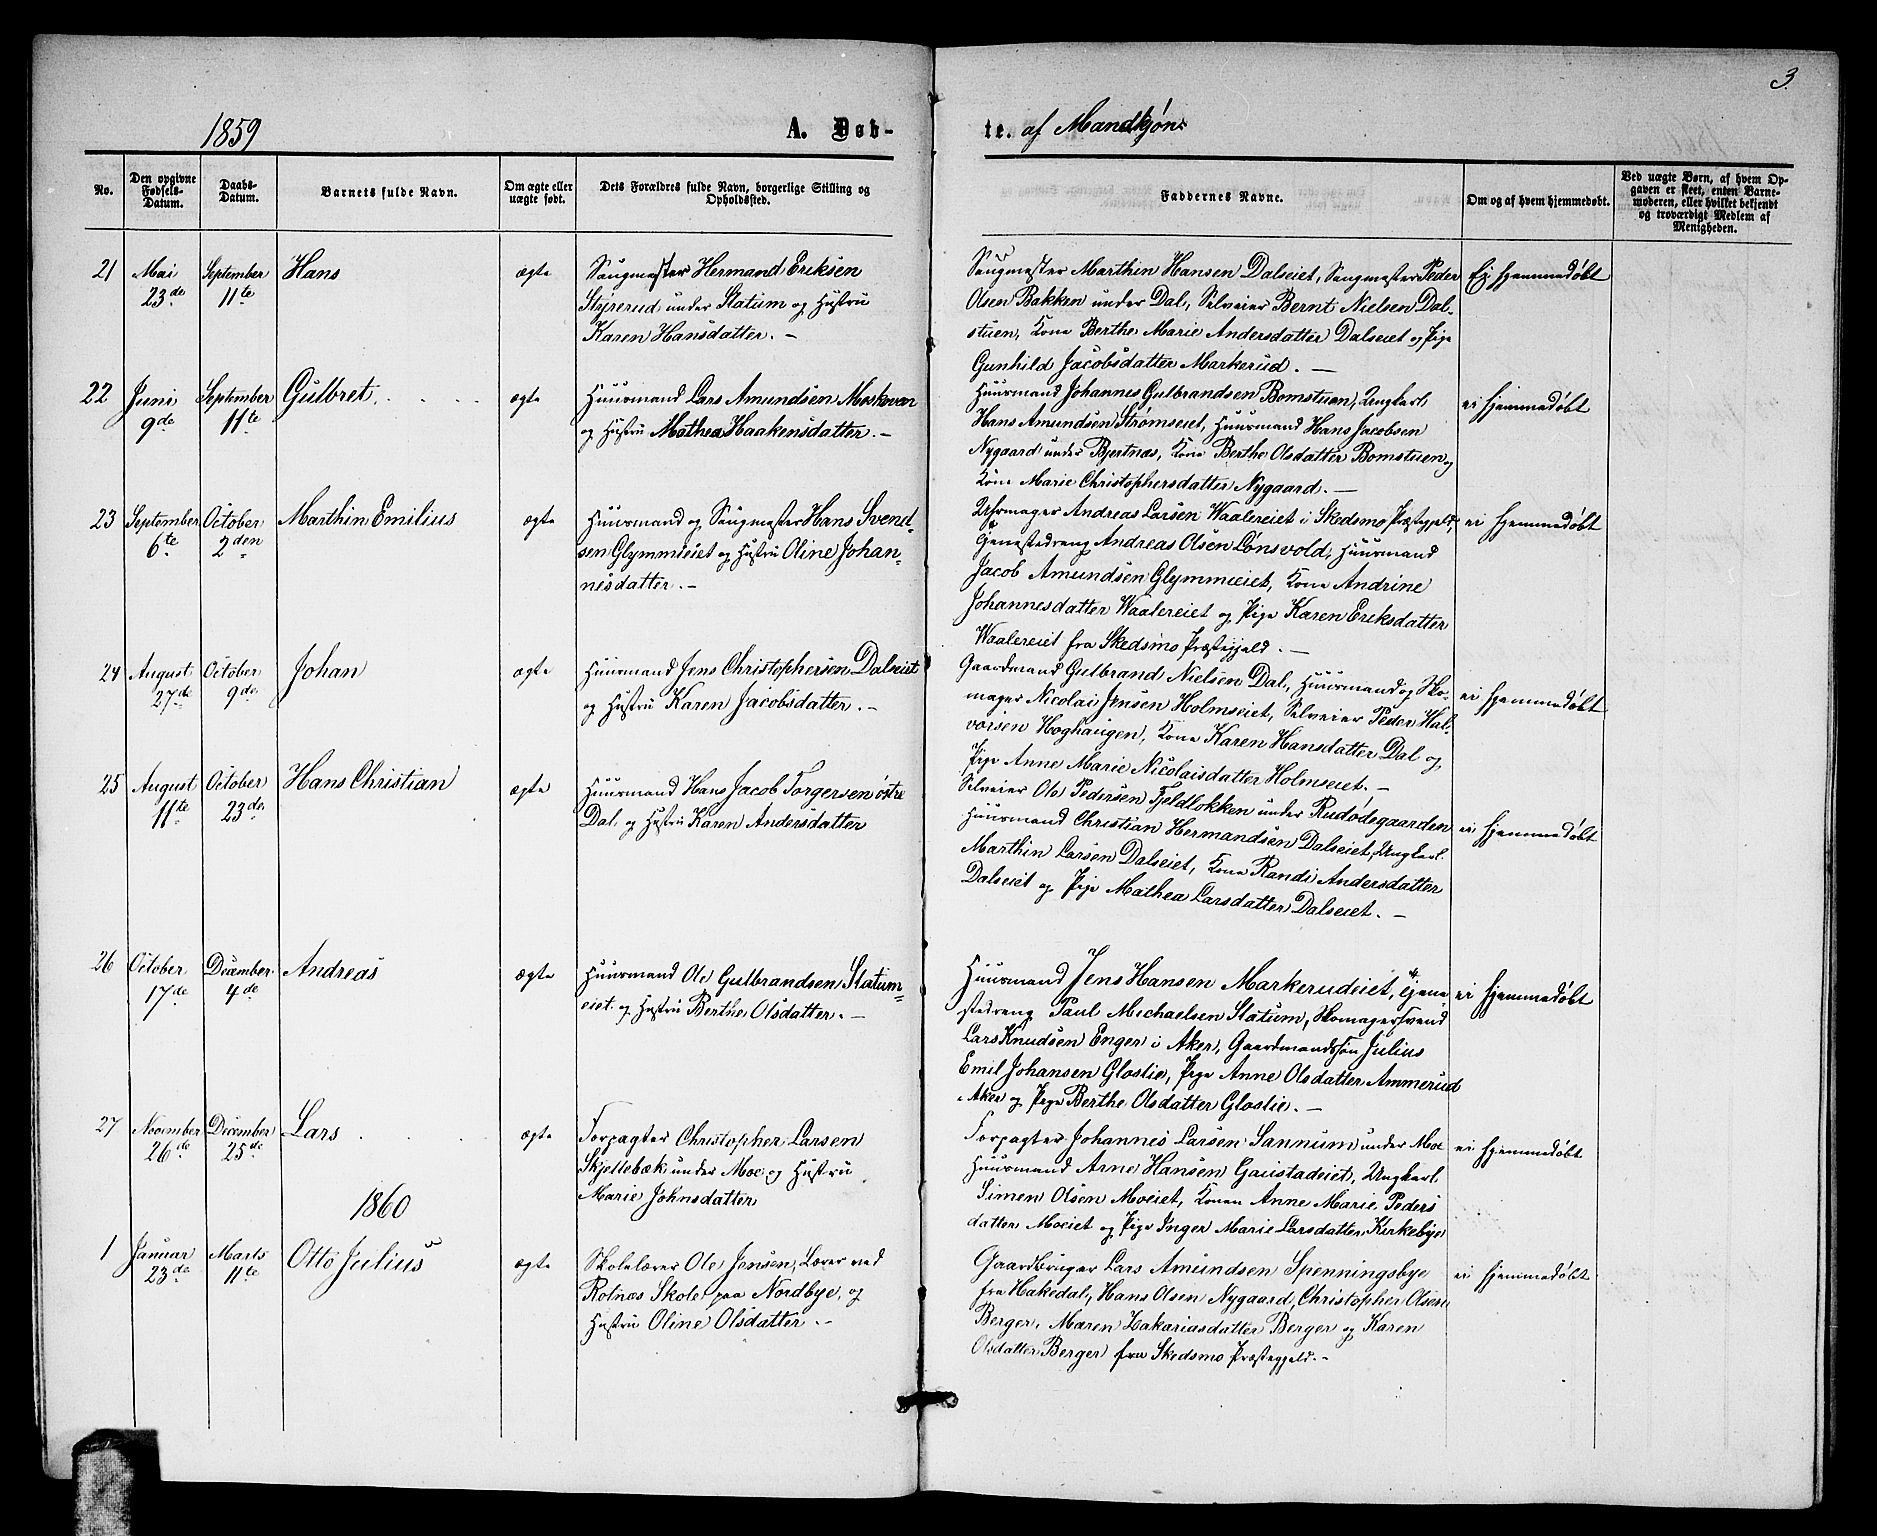 3
1859
A. Døb-
te. af Mandkjøn
No.
Den opgivne Fødsels-Datum.
Daabs-Datum.
Barnets fulde Navn.
Om ægte eller uægte født.
Dets Forældres fulde Navn, borgerlige Stilling og Opholdssted.
Faddernes Navne.
Om og af hvem hjemmedøbt.
Ved uægte Børn, af hvem Opgaven er skeet, enten Barnemoderen, eller hvilket bekjendt og troværdigt Medlem af Menigheden.
21 Mai 23de September 11te Hans ægte
Saugmester Hermand Eriksen
Styrerud under Slatum og Hustru
Karen Hansdatter. —
Saugmester Marthin Hansen Dalseiet, Saugmester Peder
Olsen Bakken under Dal, Selveier Bernt Nielsen Dal-
stuen, Kone Berthe Marie Andersdatter Dalseiet og Pige
Gunhild Jacobsdatter Markerud. —
Ej hjemmedøbt
22 Juni 9de September 11te Gulbret. ægte
Huusmand Lars Amundsen Moskoven
og Hustru Mathea Haakensdatter. —
Huusmand Johannes Gulbrandsen Bomstuen, Ungkarl
Hans Amundsen Strømseiet, Huusmand Hans Jacobsen
Nygaard under Bjertnæs, Kone Berthe Olsdatter Bomstuen og
Kone Marie Christophersdatter Nygaard. —
ei hjemmedøbt
23 September 6te October 2den Marthin Emilius ægte
Huusmand og Saugmester Hans Svend-
sen Glymmieiet og Hustru Oline Johan-
nesdatter. —
Uhrmager Andreas Larsen Waalereiet i Skedsmo Præstegjeld,
Tjenestedreng Andreas Olsen Lønsvold, Huusmand
Jacob Amundsen Glymmieiet, Kone Andrine
Johannesdatter Waalereiet og Pige Karen Eriksdatter
Waalereiet fra Skedsmo Præstegjeld. —
ei hjemmedøbt
24 August 27de October 9de Johan ægte
Huusmand Jens Christophersen Dalseiet
og Hustru Karen Jacobsdatter. —
Gaardmand Gulbrand Nielsen Dal, Huusmand og Sko-
mager Nicolai Jensen Holmseiet, Selveier Peder Hal-
vorsen Hoghaugen, Kone Karen Hansdatter Dal og
Pige Anne Marie Nicolaisdatter Holmseiet. —
ei hjemmedøbt
25 August 11te October 23de Hans Christian ægte
Huusmand Hans Jacob Torgersen østre
Dal, og Hustru Karen Andersdatter
Selveier Ole Pedersen Fjeldlokken under Rudødegaarden
Huusmand Christian Hermandsen Dalseiet, Ungkarl
Marthin Larsen Dalseiet, Kone Randi Andersdatter
Dalseiet og Pige Mathea Larsdatter Dalseiet. —
ei hjemmedøbt
26 October 17de December 4de Andreas ægte
Huusmand Ole Gulbrandsen Slatum-
eiet og Hustru Berthe Olsdatter. —
Huusmand Jens Hansen Markerudeiet, Tjene-
stedreng Paul Michaelsen Slatum, Skomagersvend
Lars Knudsen Enger i Aker, Gaardmandssøn Julius
Emil Johansen Glostie, Pige Anne Olsdatter Ammerud
i Aker og Pige Berthe Olsdatter Glostie. —
ei hjemmedøbt
27 November 26de December 25de Lars ægte
Forpagter Christopher Larsen
Skjellebæk under Moe og Hustru
Marie Johnsdatter
Forpagter Johannes Larsen Sannum under Moe
Huusmand Arne Hansen Gaustadeiet, Ungkarl
Simen Olsen Moeiet, Konen Anne Marie Peders
datter Moeiet og Pige Inger Marie Larsdatter Kirkebye
ei hjemmedøbt
1860
1 Januar 23de Marts 11te Otto Julius ægte
Skolelærer Ole Jensen, Lærer ved
Rolnæs Skole paa Nordbye, og
Hustru Oline Olsdatter. —
Gaardbruger Lars Amundsen Spenningsbye
fra Hakedal, Hans Olsen Nygaard, Christopher Olsen
Berger, Maren Zakariasdatter Berger og Karen
Olsdatter Berger fra Skedsmo Præstegjeld. —
ei hjemmedøbt